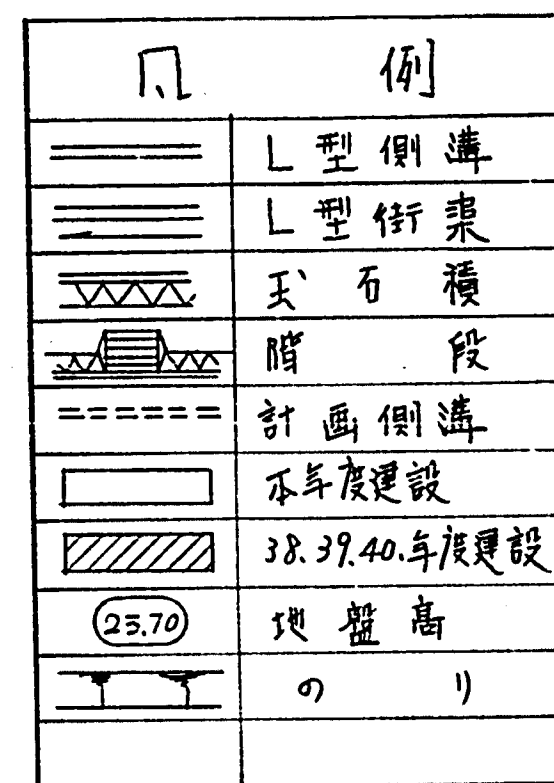 凡例
L型側溝
L型街渠
玉石積
階段
計画側溝
本年度建設
38.39.40.年度建設
25.70 地盤高
のり